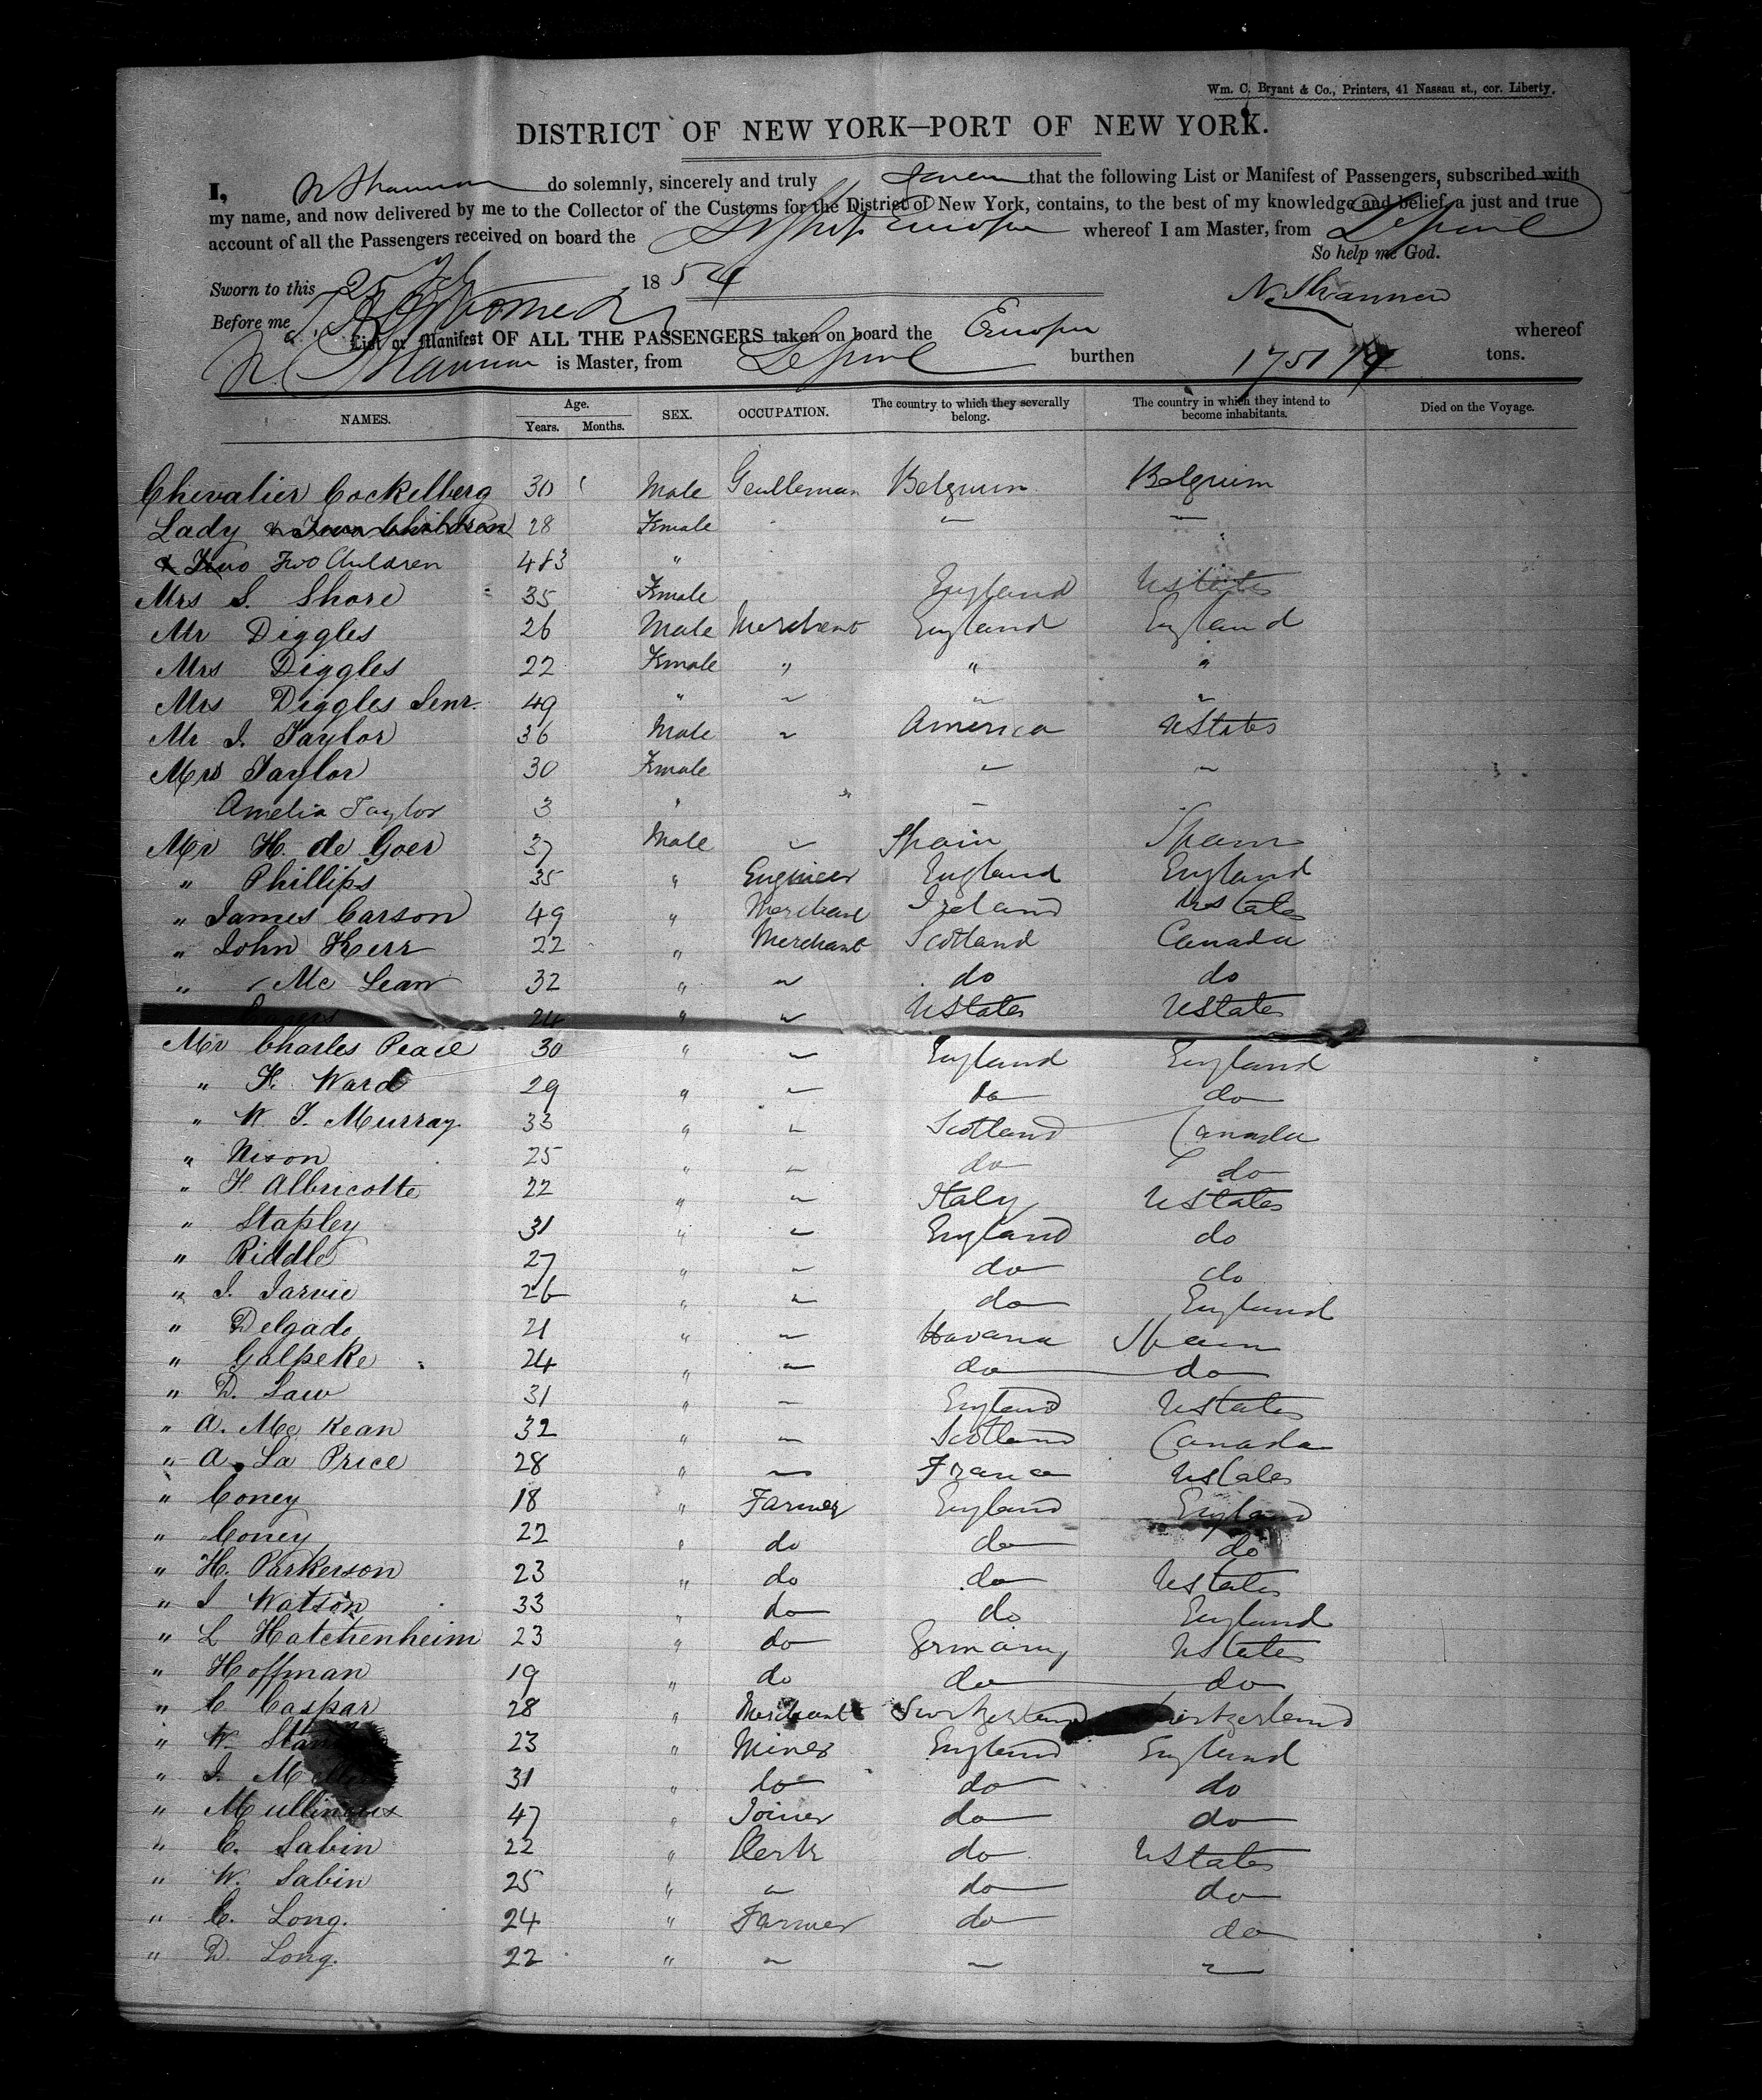 Wm. C. Bryant & Co., Printers, 41 Nassau st., cor. Liberty.
DISTRICT OF NEW YORK—PORT OF NEW YORK.
I, N Shannon do solemnly, sincerely and truly that the following List or Manifest of Passengers, subscribed with
my name, and now delivered by me to the Collector of the Customs for the District of New York, contains, to the best of my knowledge and belief, a just and true
account of all the Passengers received on board the Europa whereof I am Master, from L'pool
So help me God.
Sworn to this 25 1854
N. Shannon
Before me
List or Manifest OF ALL THE PASSENGERS taken on board the Europa whereof
N. Shannon is Master, from L'pool burthen 1751 tons.
NAMES. Age. Years. Months. SEX. OCCUPATION. The country to which they severally belong. The country in which they intend to become inhabitants. Died on the Voyage.
Chevalier Cockelberg 30 Male Gentleman Belgium Belgium
Lady & Two Children 28 Female " "
& Two Two Children 4 & 3 "
Mrs S. Shore 35 Female England UStates
Mr Diggles 26 Male Merchant England England
Mrs Diggles 22 Female " " "
Mrs Diggles Senr. 49 " " " "
Mr J. Taylor 36 Male " America UStates
Mrs Taylor 30 Female " "
Amelia Taylor 3 " " "
Mr H. de Goer 37 Male " Spain Spain
" Phillips 35 " Engineer England England
" James Carson 49 " Merchant Ireland UStates
" John Kerr 22 " Merchant Scotland Canada
" Mc Lean 32 " " do do
24 " " UStates UStates
Mr Charles Peace 30 " " England England
" H. Ward 29 " " do do
" W T. Murray 33 " " Scotland Canada
" Nixon 25 " " do do
" H Albricotte 22 " " Italy UStates
" Stapley 31 " " England do
" Riddle 27 " " do do
" J. Jarvie 26 " " do England
" Delgado 21 " " Havana Spain
" Galpeke 24 " " do do
" D. Law 31 " " England UStates
" A. Mc Kean 32 " " Scotland Canada
" A. La Price 28 " " France UStates
" Coney 18 " Farmer England England
" Coney 22 " do do do
" H. Parkerson 23 " do do UStates
" J Watson 33 " do do England
" L Hatchenheim 23 " do Germany UStates
" Hoffman 19 " do do do
" C Caspar 28 " Merchant Switzerland Switzerland
" W. 23 " Miner England England
" J. 31 " do do do
" 47 " Joiner do do
" C. Sabin 22 " Clerk do UStates
" W. Sabin 25 " " do do
" C. Long. 24 " Farmer do do
" D. Long. 22 " " " "